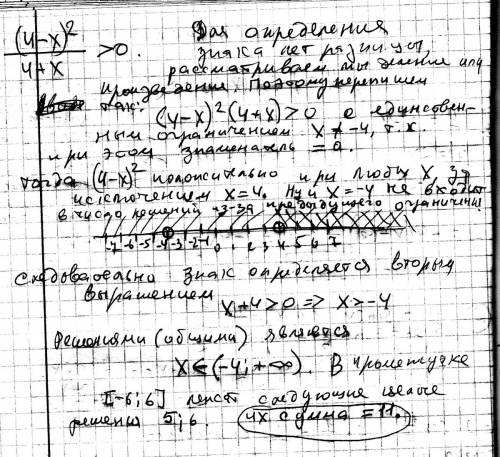 (4-x)² / 4+x > 0. Для определения
знака нет разницы,
рассматриваем мы деление или
произведение. Поэтому перепишем
так:
(4-x)²(4+x)>0 с единствен-
ным ограничением x≠-4, т.к.
при этом знаменатель = 0.
тогда (4-x)² положительно при любых x, за
исключением x=4. Ну и x=-4 не входит
в число решений из-за предыдущего ограничения
-7 -6 -5 -4 -3 -2 -1 0 1 2 3 4 5 6 7
следовательно знак определяется вторым
выражением x+4>0 => x>-4
Решениями (общими) является
x∈(-4; +∞). В промежутке
[-6;6] лежат следующие целые
решения 5;6. их сумма = 11.